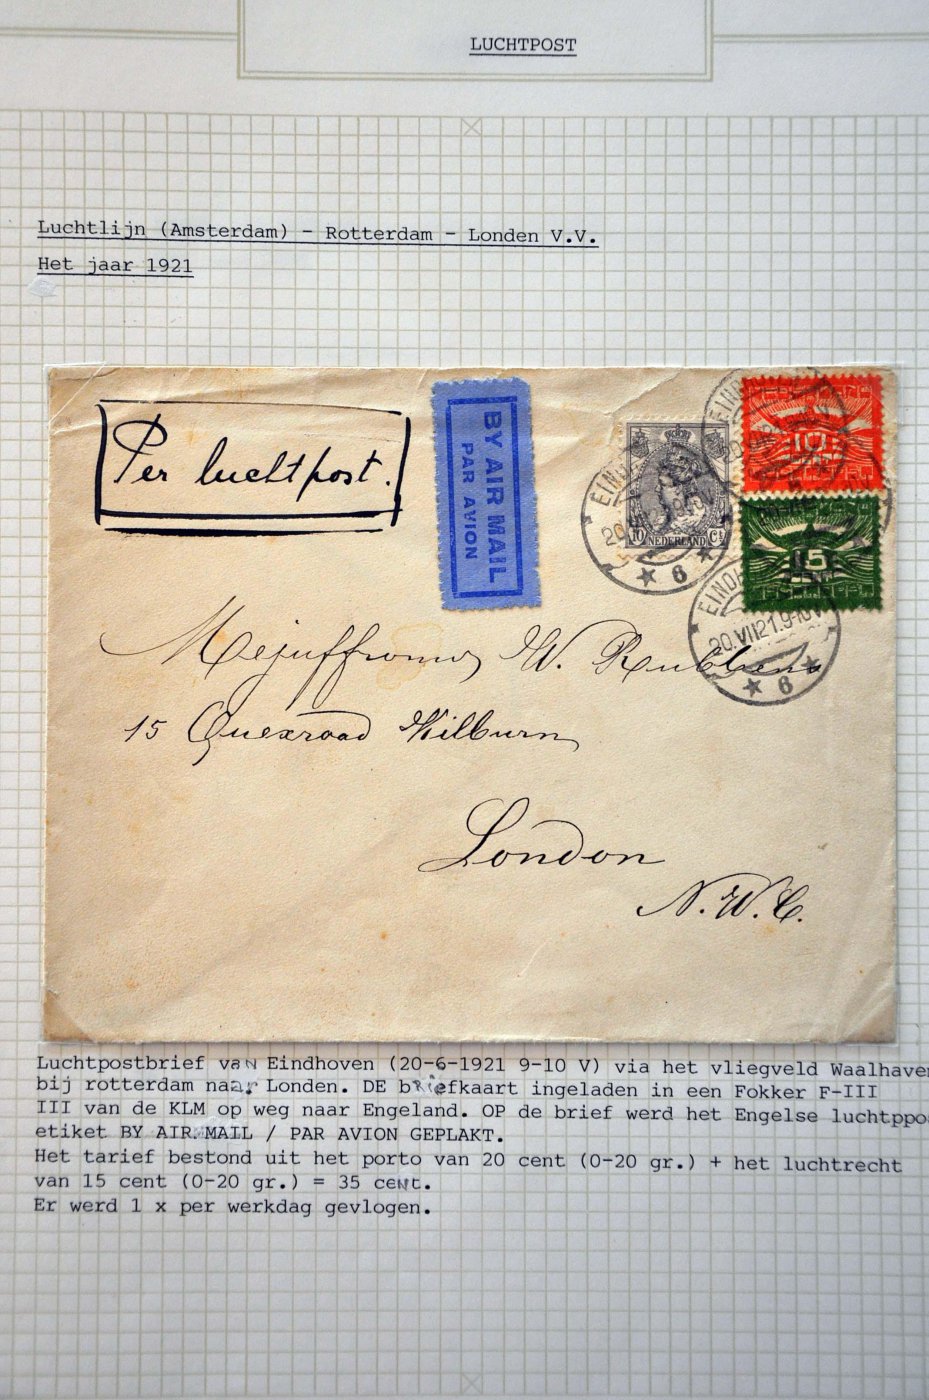 LUCHTPOST
Luchtlijn (Amsterdam) - Rotterdam - Londen V.V.
Het jaar 1921
Per luchtpost.
BY AIR MAIL
PAR AVION
10 NEDERLAND Ct
10
15
EINDH
20.VII.21.9-10V
6
EINDH
20.VII.21.9-10V
6
Mejuffrouw W. Rubbens
15 Quexroad Kilburn
London
N.W.6.
Luchtpostbrief van Eindhoven (20-6-1921 9-10 V) via het vliegveld Waalhaven
bij rotterdam naar Londen. DE briefkaart ingeladen in een Fokker F-III
III van de KLM op weg naar Engeland. OP de brief werd het Engelse luchtppos
etiket BY AIR MAIL / PAR AVION GEPLAKT.
Het tarief bestond uit het porto van 20 cent (0-20 gr.) + het luchtrecht
van 15 cent (0-20 gr.) = 35 cent.
Er werd 1 x per werkdag gevlogen.